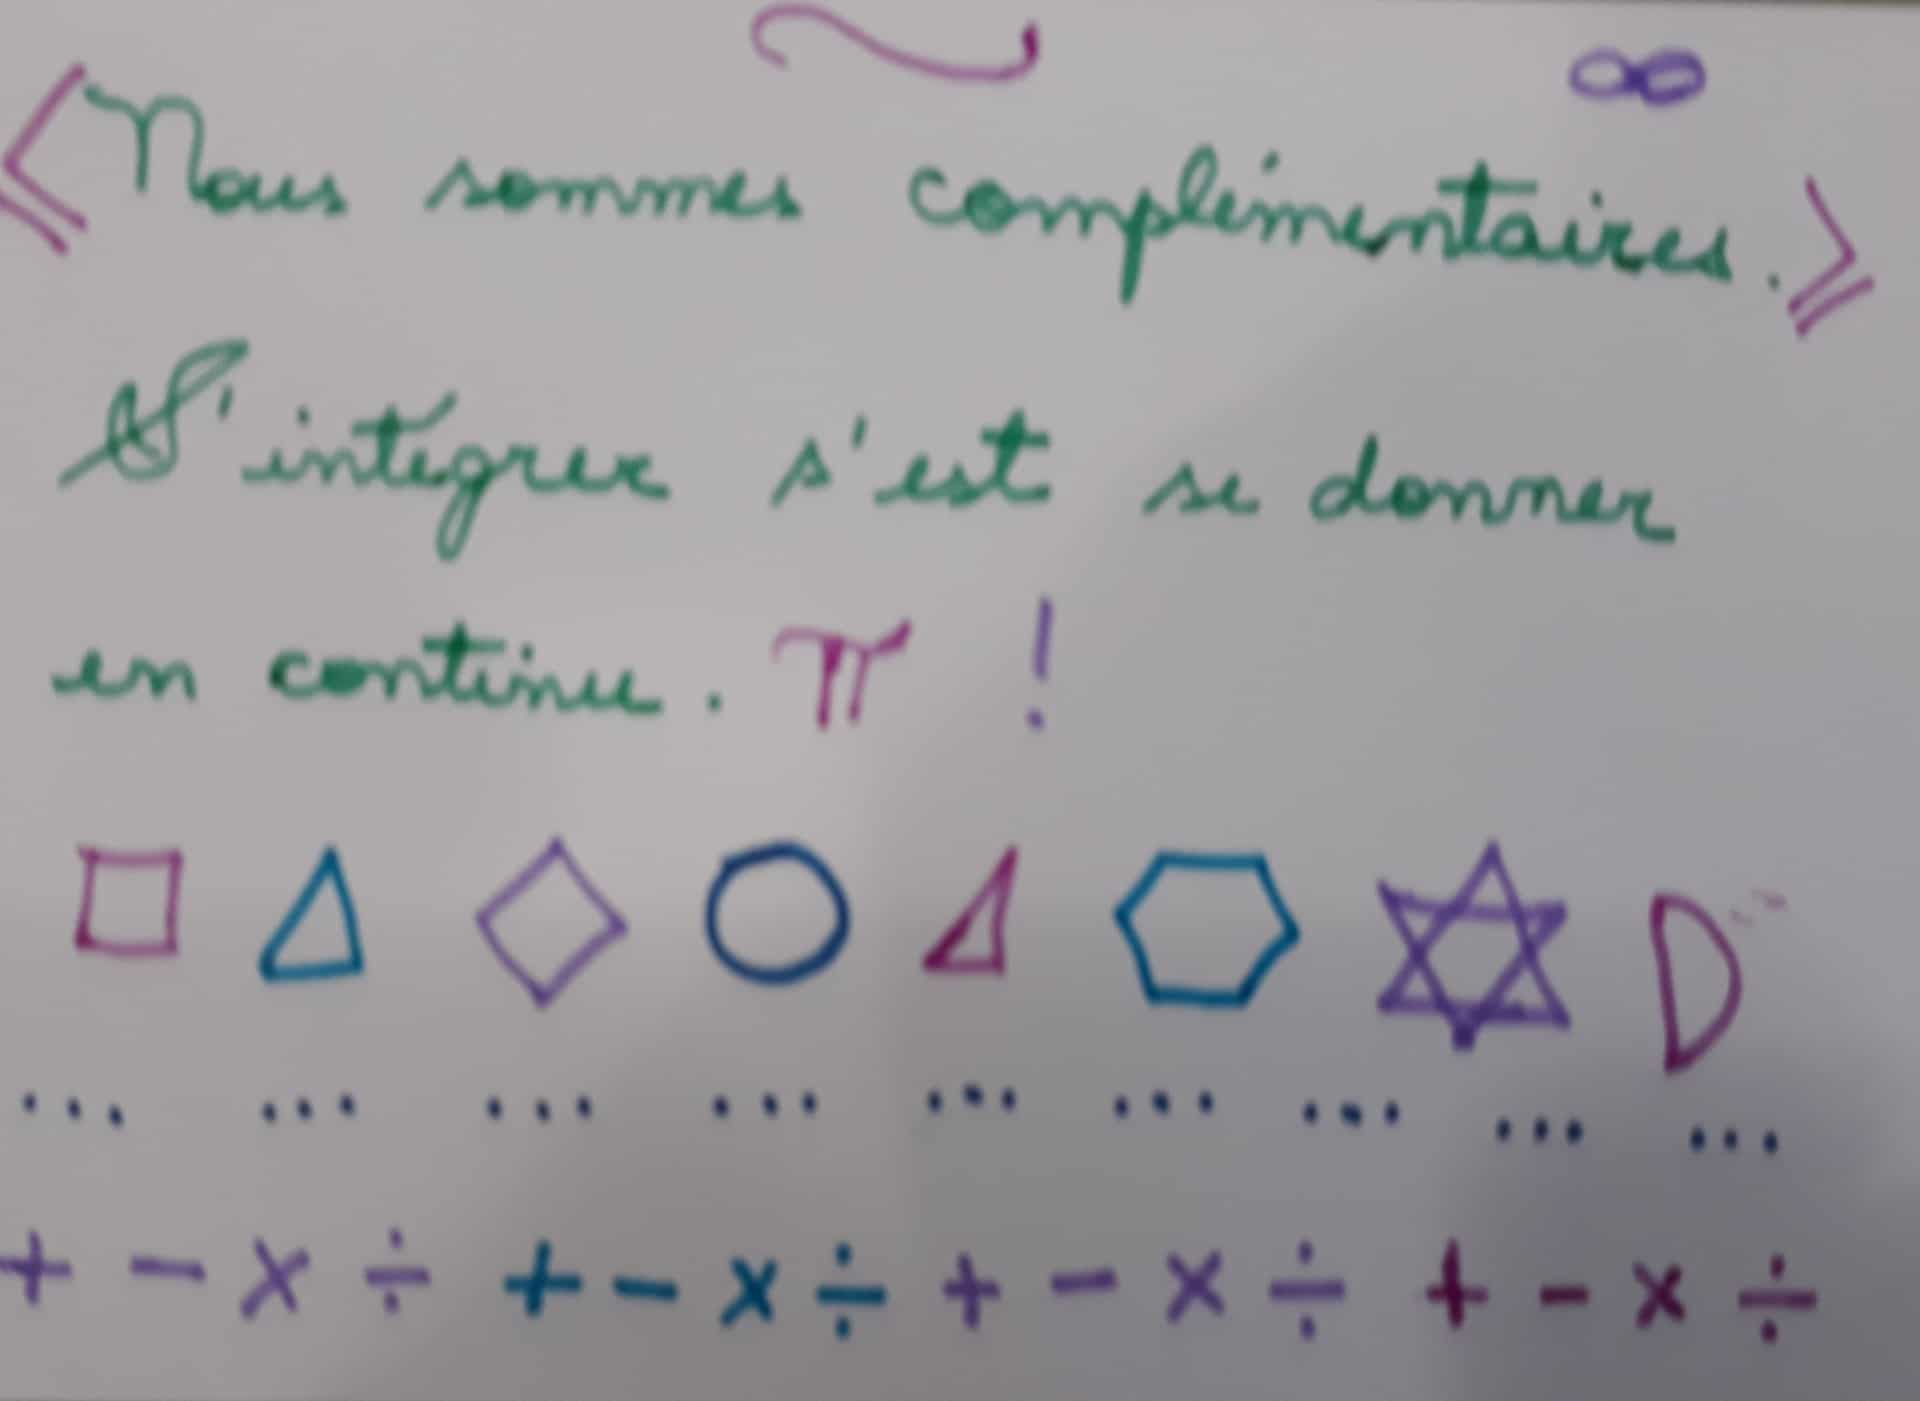 ~ ∞
⩽ Nous sommes complémentaires. ⩾
S'intégrer s'est se donner
en continu. π !
... ... ... ... ... ... ... ... ...
+ - x ÷ + - x ÷ + - x ÷ + - x ÷